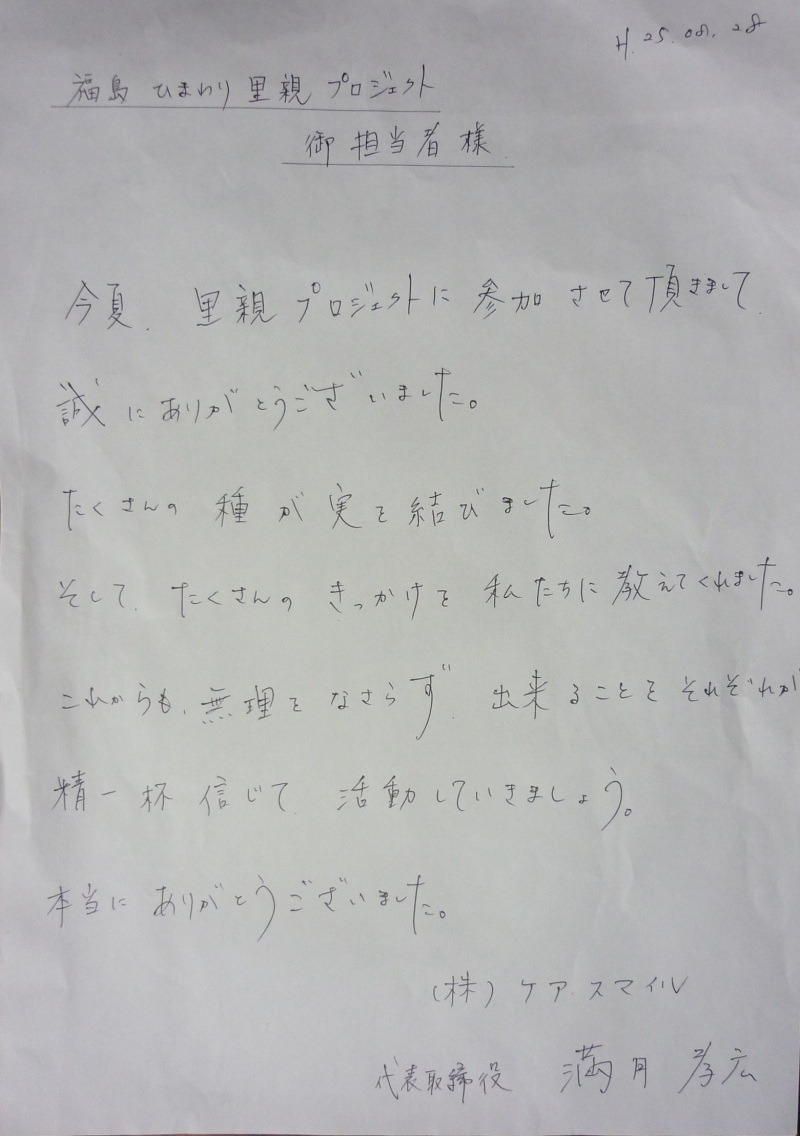 H.25.08.28
福島 ひまわり 里親 プロジェクト
御担当者様
今夏、里親プロジェクトに参加させて頂きまして、
誠にありがとうございました。
たくさんの種が実を結びました。
そして、たくさんのきっかけを私たちに教えてくれました。
これからも、無理をなさらず、出来ることをそれぞれが
精一杯信じて、活動していきましょう。
本当にありがとうございました。
(株)ケア・スマイル
代表取締役 満月 孝広